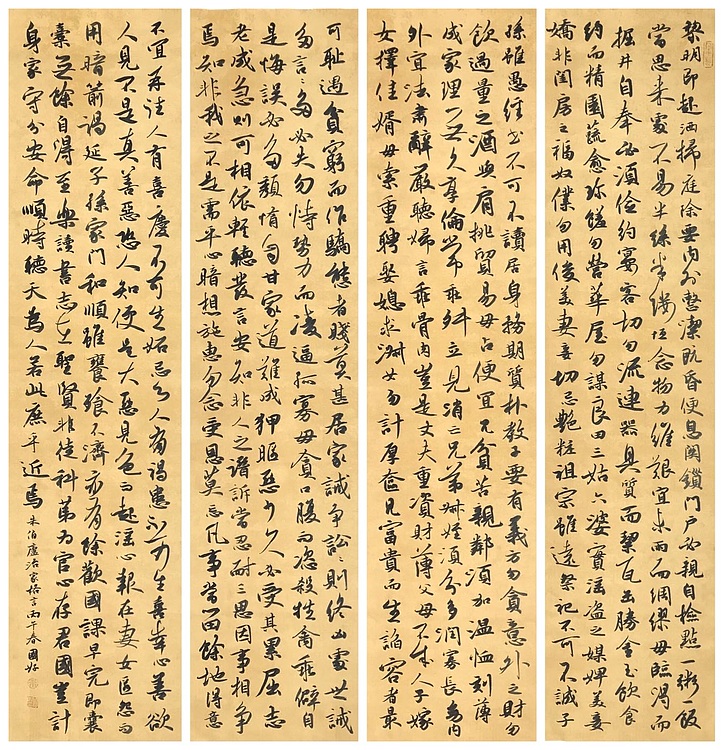 黎明即起洒掃庭除要內外整潔既昏便息關鎖門戶必親自檢點一粥一飯
當思來處不易半絲半縷恆念物力維艱宜未雨而綢繆毋臨渴而
掘井自奉必須儉約宴客切勿流連器具質而潔瓦缶勝金玉飲食
約而精園蔬愈珍饈勿營華屋勿謀良田三姑六婆實淫盜之媒婢美妾
嬌非閨房之福奴僕勿用俊美妻妾切忌艷粧祖宗雖遠祭祀不可不誠子
孫雖愚經書不可不讀居身務期質朴教子要有義方勿貪意外之財勿
飲過量之酒與肩挑貿易毋占便宜見貧苦親鄰須加溫恤刻薄
成家理無久享倫常乖舛立見消亡兄弟叔姪須分多潤寡長幼內
外宜法肅辭嚴聽婦言乖骨肉豈是丈夫重資財薄父母不成人子嫁
女擇佳婿毋索重聘娶媳求淑女勿計厚奩見富貴而生諂容者最
可恥遇貧窮而作驕態者賤莫甚居家誡爭訟訟則終凶處世誡
多言言多必失勿恃勢力而凌逼孤寡毋貪口腹而恣殺牲禽乖僻自
是悔誤必多頹惰自甘家道難成狎暱惡少久必受其累屈志
老成急則可相依輕聽發言安知非人之譖訴當忍耐三思因事相爭
焉知非我之不是需平心暗想施惠勿念受恩莫忘凡事當留餘地得意
不宜再往人有喜慶不可生妬忌心人有禍患不可生喜幸心善欲
人見不是真善惡恐人知便是大惡見色而起淫心報在妻女匿怨而
用暗箭禍延子孫家門和順雖饔飧不濟亦有餘歡國課早完即囊
橐無餘自得至樂讀書志在聖賢非徒科第為官心存君國豈計
身家守分安命順時聽天為人若此庶乎近焉 朱伯廬治家格言丙午春國好